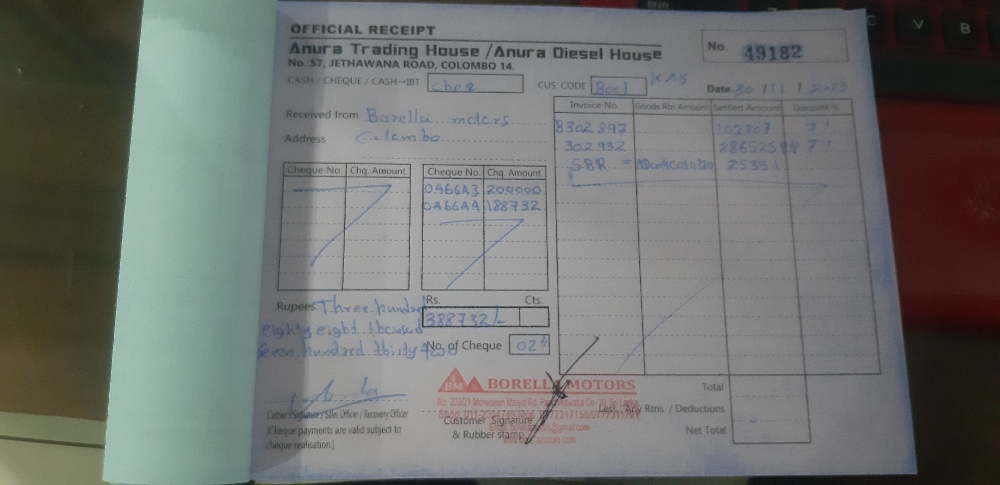 OFFICIAL RECEIPT
Anura Trading House / Anura Diesel House
No. 57, JETHAWANA ROAD, COLOMBO 14.
No. 49182
CASH / CHEQUE / CASH-IBT cheq
CUS. CODE
Date.
Received from Borella motors
Address Colombo
Invoice No. Goods Rtn Amount Settled Amount Discount %
8302897 102207 7%
302932 7%
SBR =
Cheque No. Chq. Amount
Cheque No. Chq. Amount
0A66A3 200000
0A66A4 188732
Rupees Three hundred
eighty eight thousand
Seven hundred thirty
Rs. Cts.
388732/-
No. of Cheque 02
Cashier / Signature / Sales Officer / Recovery Officer
(Cheque payments are valid subject to
cheque realisation.)
BM BORELLA MOTORS
Customer Signature
& Rubber stamp
Total
Less : Any Rtns. / Deductions
Net Total
C V B
Shift